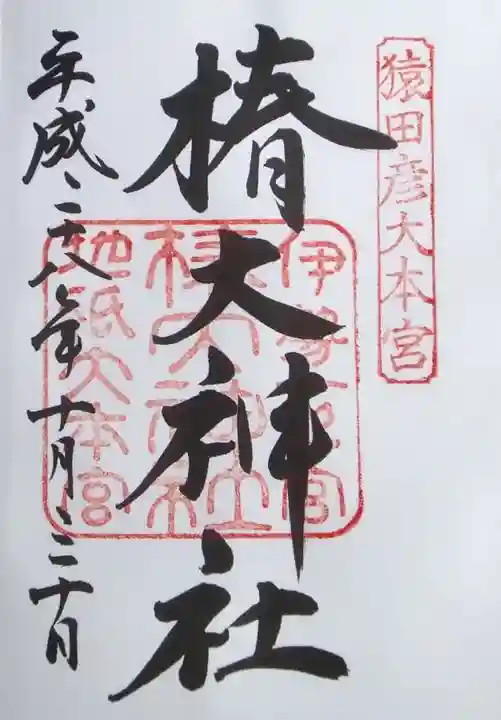 猿田彦大本宮
椿大神社
伊勢一宮
椿大神社
地祇大本宮
平成二十八年十月三十日